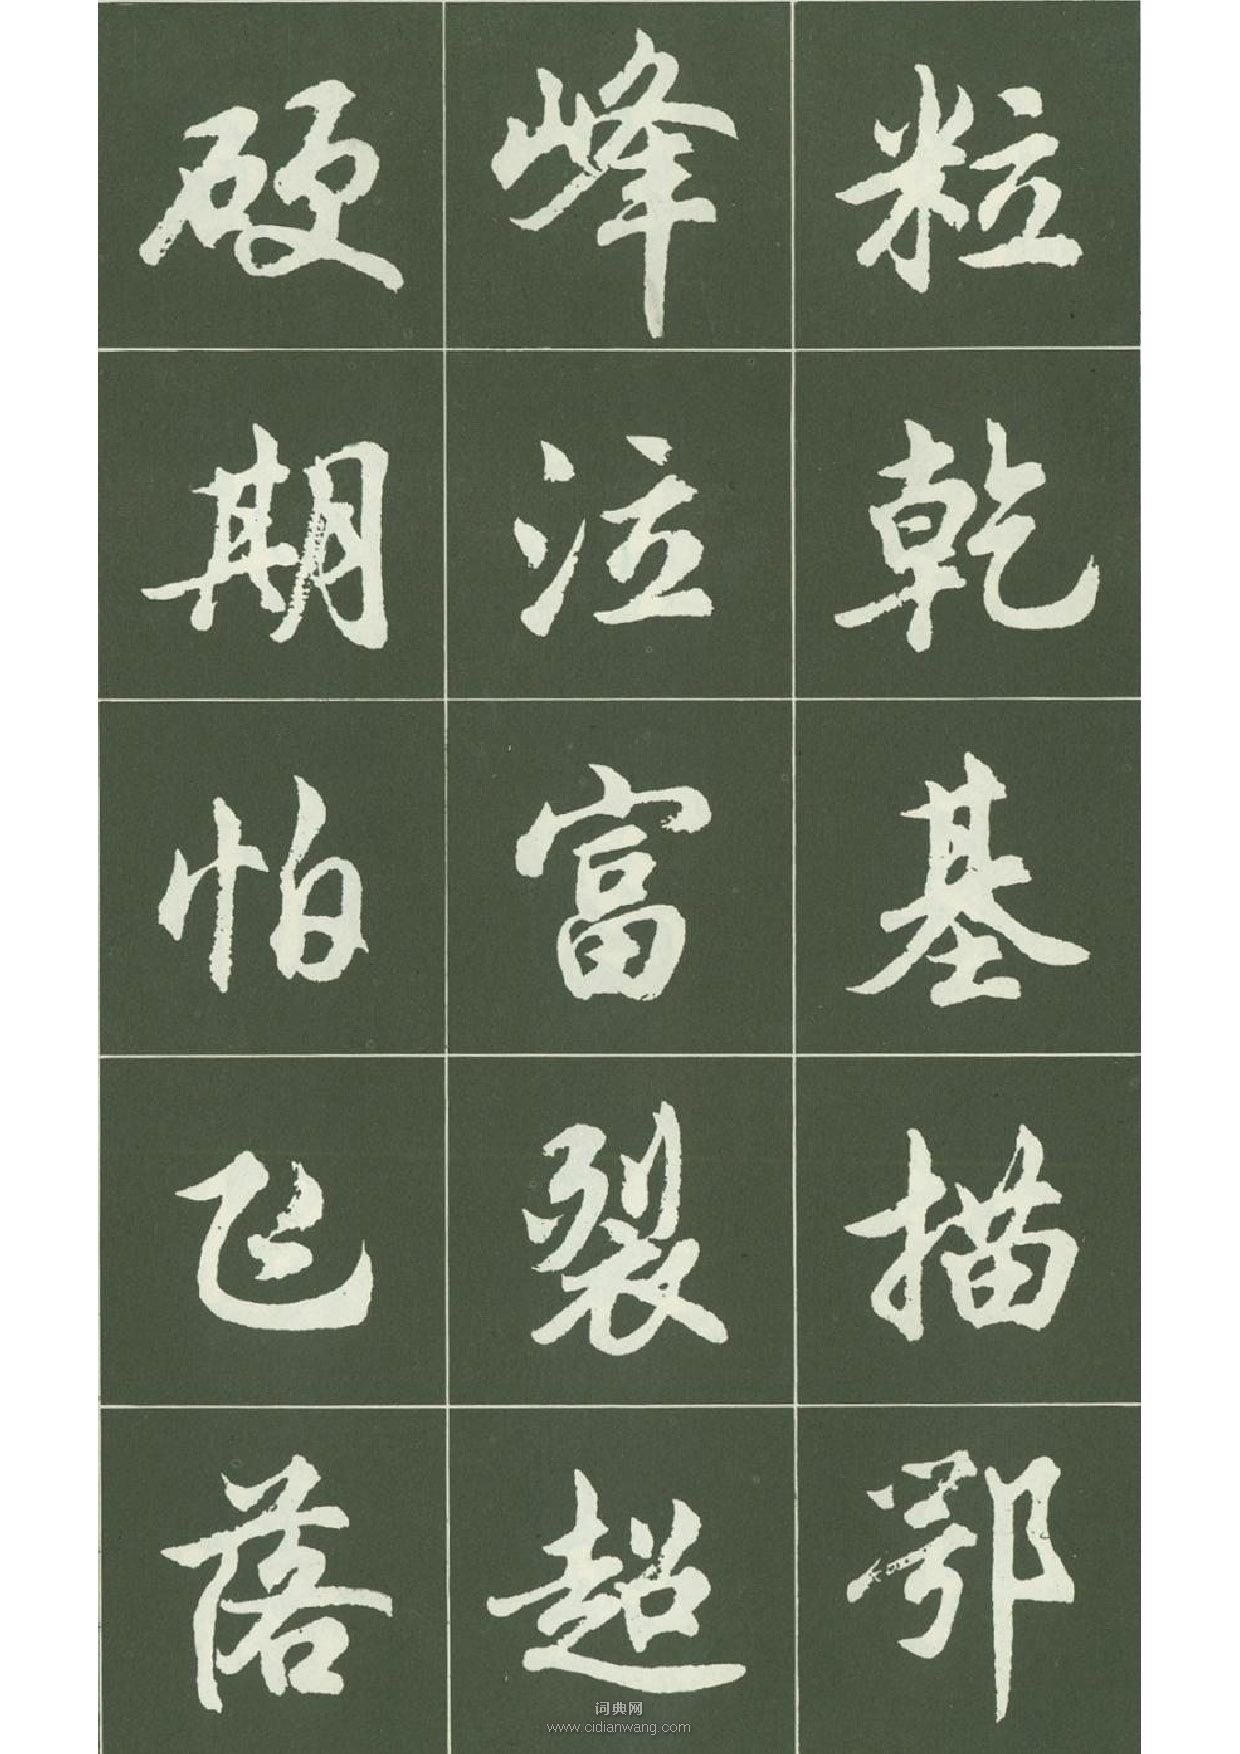 粒乾基描鄂
峰泣富裂超
硬期怕飞落
词典网
www.cidianwang.com